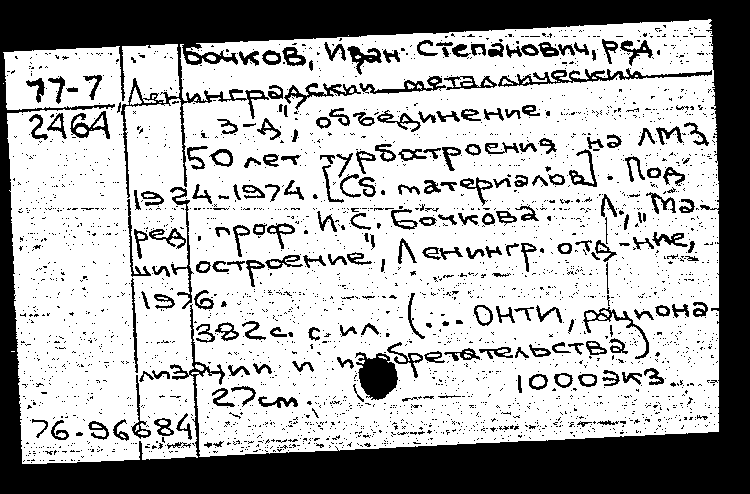 Бочков, Иван Степанович, ред.
77-7 „Ленинградский металлический
2464 з-д", объединение.
50 лет турбостроения на ЛМЗ
1924-1974. [Сб. материалов]. Под
ред. проф. И.С. Бочкова. Л., „Ма-
шиностроение", Ленингр. отд-ние,
1976.
382 с. с ил. (... ОНТИ, рациона-
лизации и изобретательства).
27 см. 1000 экз
76.96684